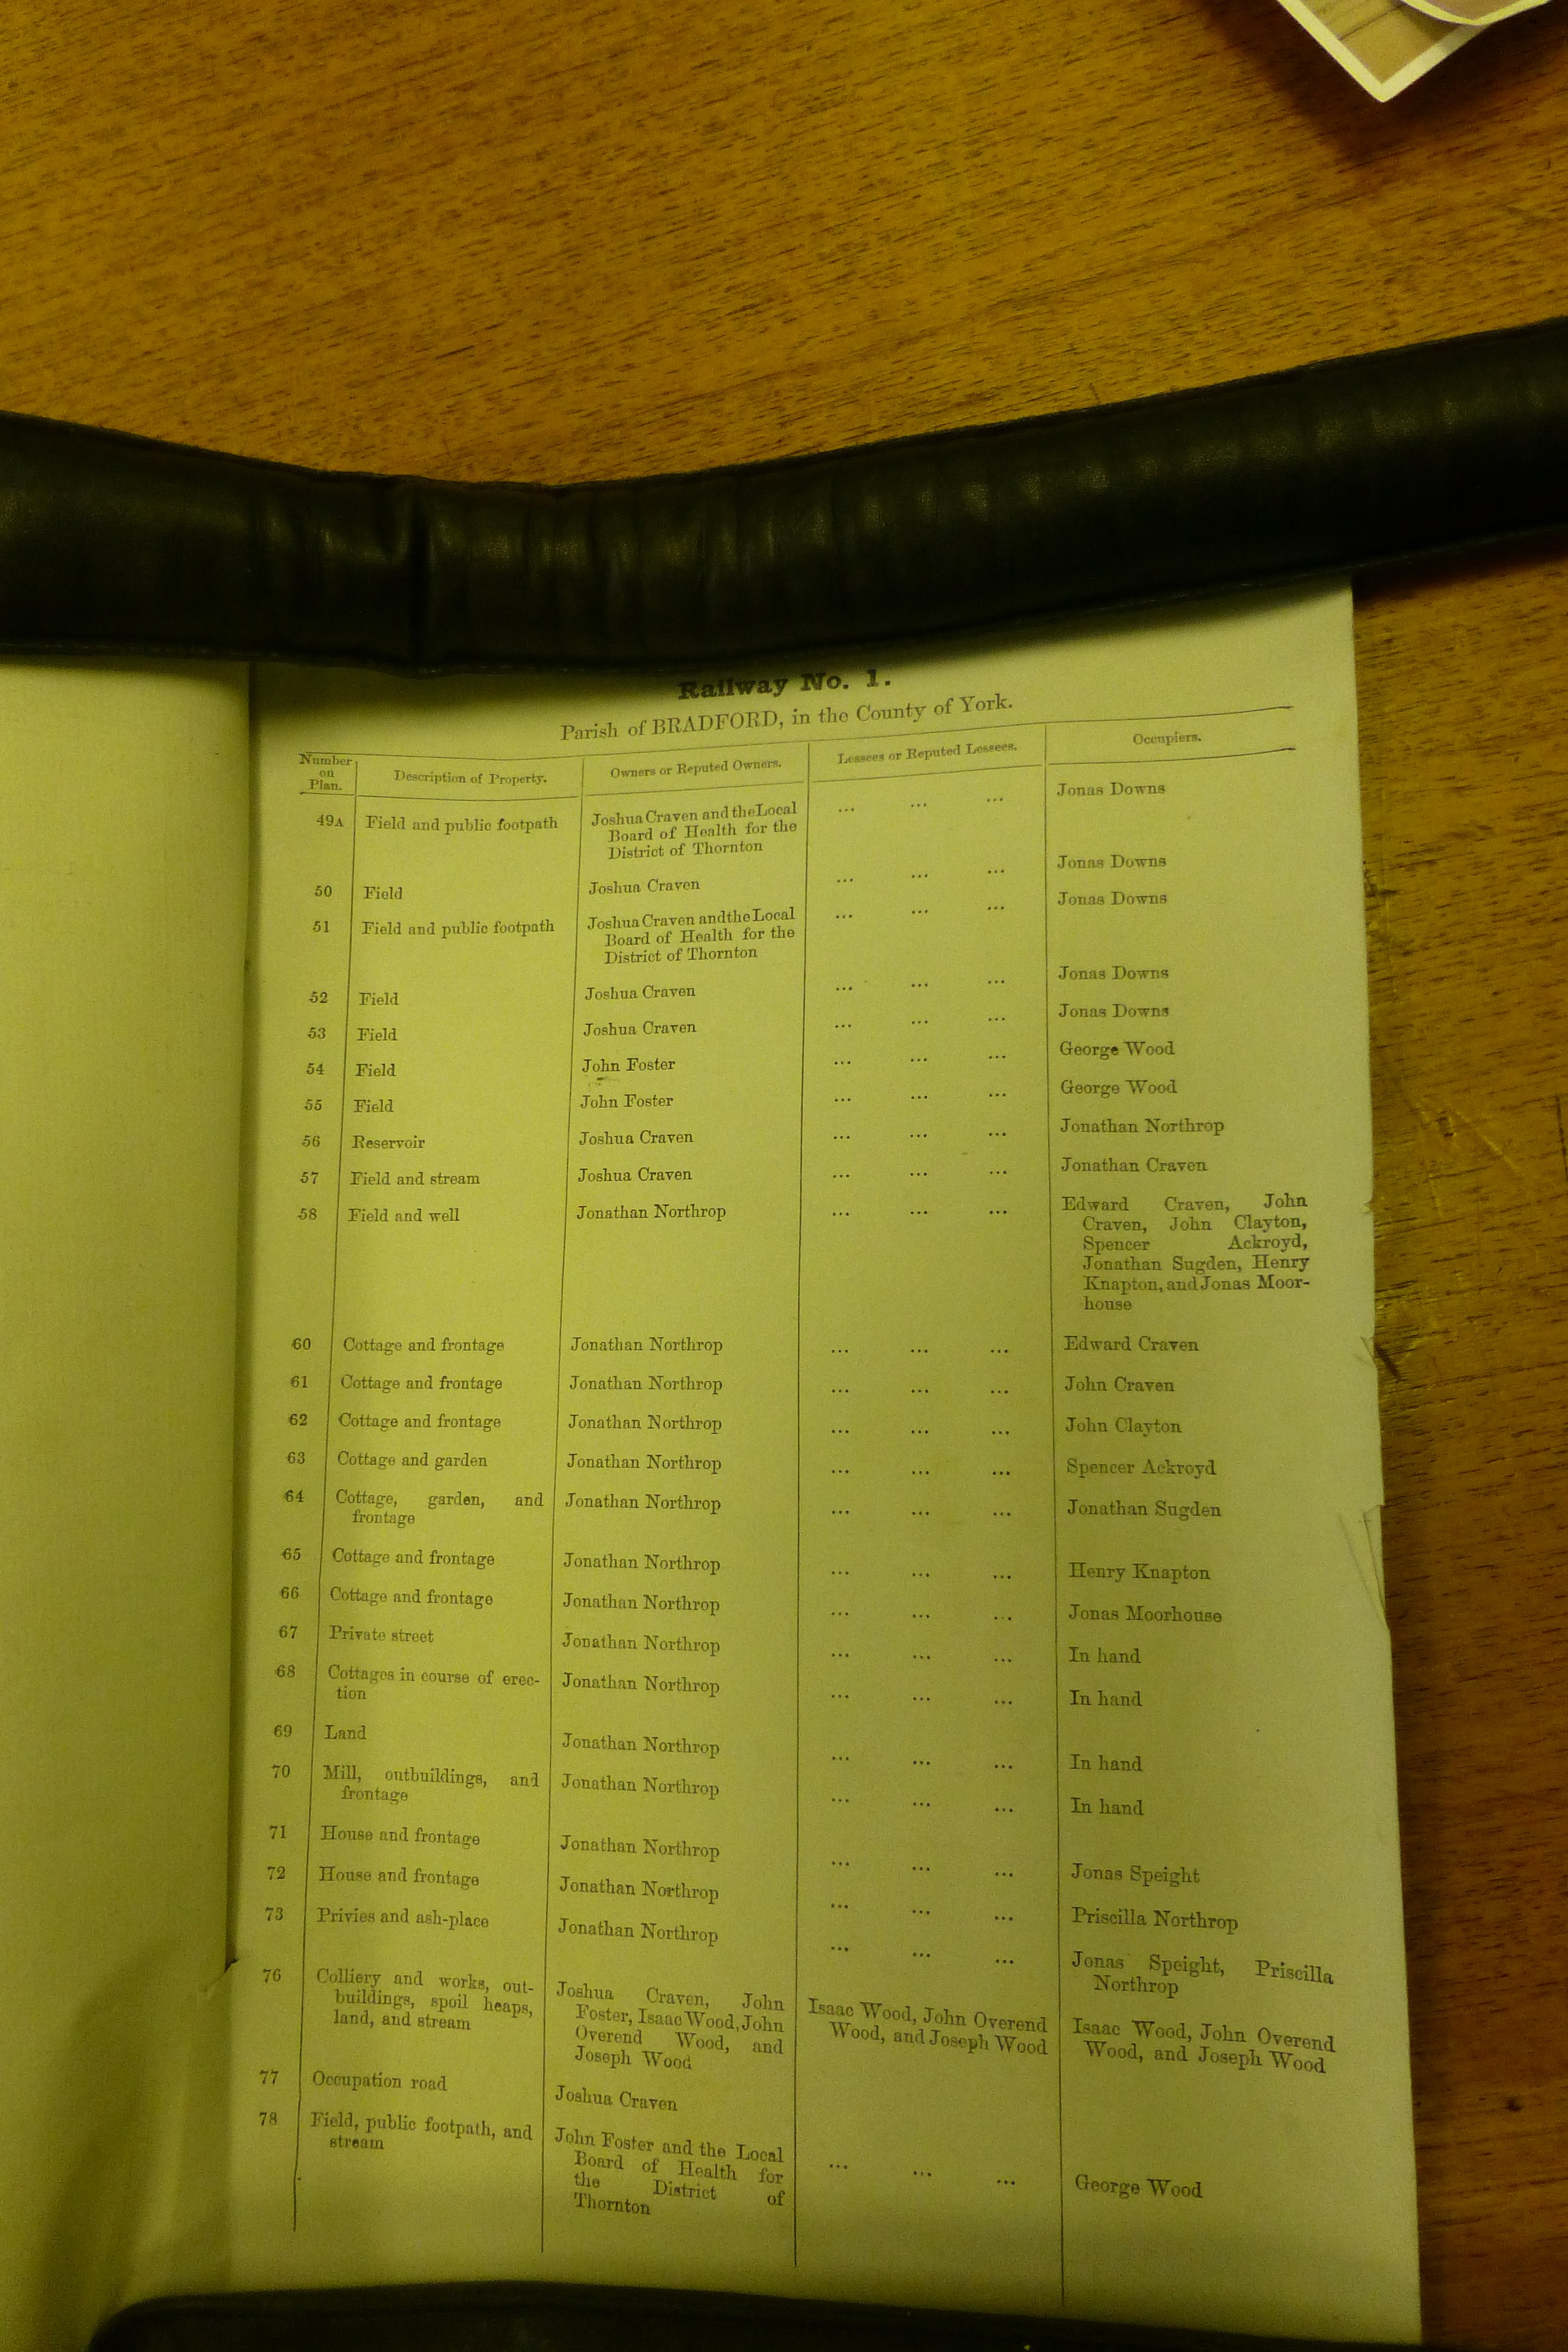 Railway No. 1.
Parish of BRADFORD, in the County of York.
Number on Plan. Description of Property. Owners or Reputed Owners. Lessees or Reputed Lessees. Occupiers.
49A Field and public footpath Joshua Craven and the Local ... ... ... Jonas Downs
Board of Health for the
District of Thornton
50 Field Joshua Craven ... ... ... Jonas Downs
51 Field and public footpath Joshua Craven and the Local ... ... ... Jonas Downs
Board of Health for the
District of Thornton
52 Field Joshua Craven ... ... ... Jonas Downs
53 Field Joshua Craven ... ... ... Jonas Downs
54 Field John Foster ... ... ... George Wood
55 Field John Foster ... ... ... George Wood
56 Reservoir Joshua Craven ... ... ... Jonathan Northrop
57 Field and stream Joshua Craven ... ... ... Jonathan Craven
58 Field and well Jonathan Northrop ... ... ... Edward Craven, John
Craven, John Clayton,
Spencer Ackroyd,
Jonathan Sugden, Henry
Knapton, and Jonas Moor-
house
60 Cottage and frontage Jonathan Northrop ... ... ... Edward Craven
61 Cottage and frontage Jonathan Northrop ... ... ... John Craven
62 Cottage and frontage Jonathan Northrop ... ... ... John Clayton
63 Cottage and garden Jonathan Northrop ... ... ... Spencer Ackroyd
64 Cottage, garden, and Jonathan Northrop ... ... ... Jonathan Sugden
frontage
65 Cottage and frontage Jonathan Northrop ... ... ... Henry Knapton
66 Cottage and frontage Jonathan Northrop ... ... ... Jonas Moorhouse
67 Private street Jonathan Northrop ... ... ... In hand
68 Cottages in course of erec- Jonathan Northrop ... ... ... In hand
tion
69 Land Jonathan Northrop ... ... ... In hand
70 Mill, outbuildings, and Jonathan Northrop ... ... ... In hand
frontage
71 House and frontage Jonathan Northrop ... ... ... Jonas Speight
72 House and frontage Jonathan Northrop ... ... ... Priscilla Northrop
73 Privies and ash-place Jonathan Northrop ... ... ... Jonas Speight, Priscilla
Northrop
76 Colliery and works, out- Joshua Craven, John Isaac Wood, John Overend Isaac Wood, John Overend
buildings, spoil heaps, Foster, Isaac Wood, John Wood, and Joseph Wood Wood, and Joseph Wood
land, and stream Overend Wood, and
Joseph Wood
77 Occupation road Joshua Craven
78 Field, public footpath, and John Foster and the Local ... ... ... George Wood
stream Board of Health for
the District of
Thornton